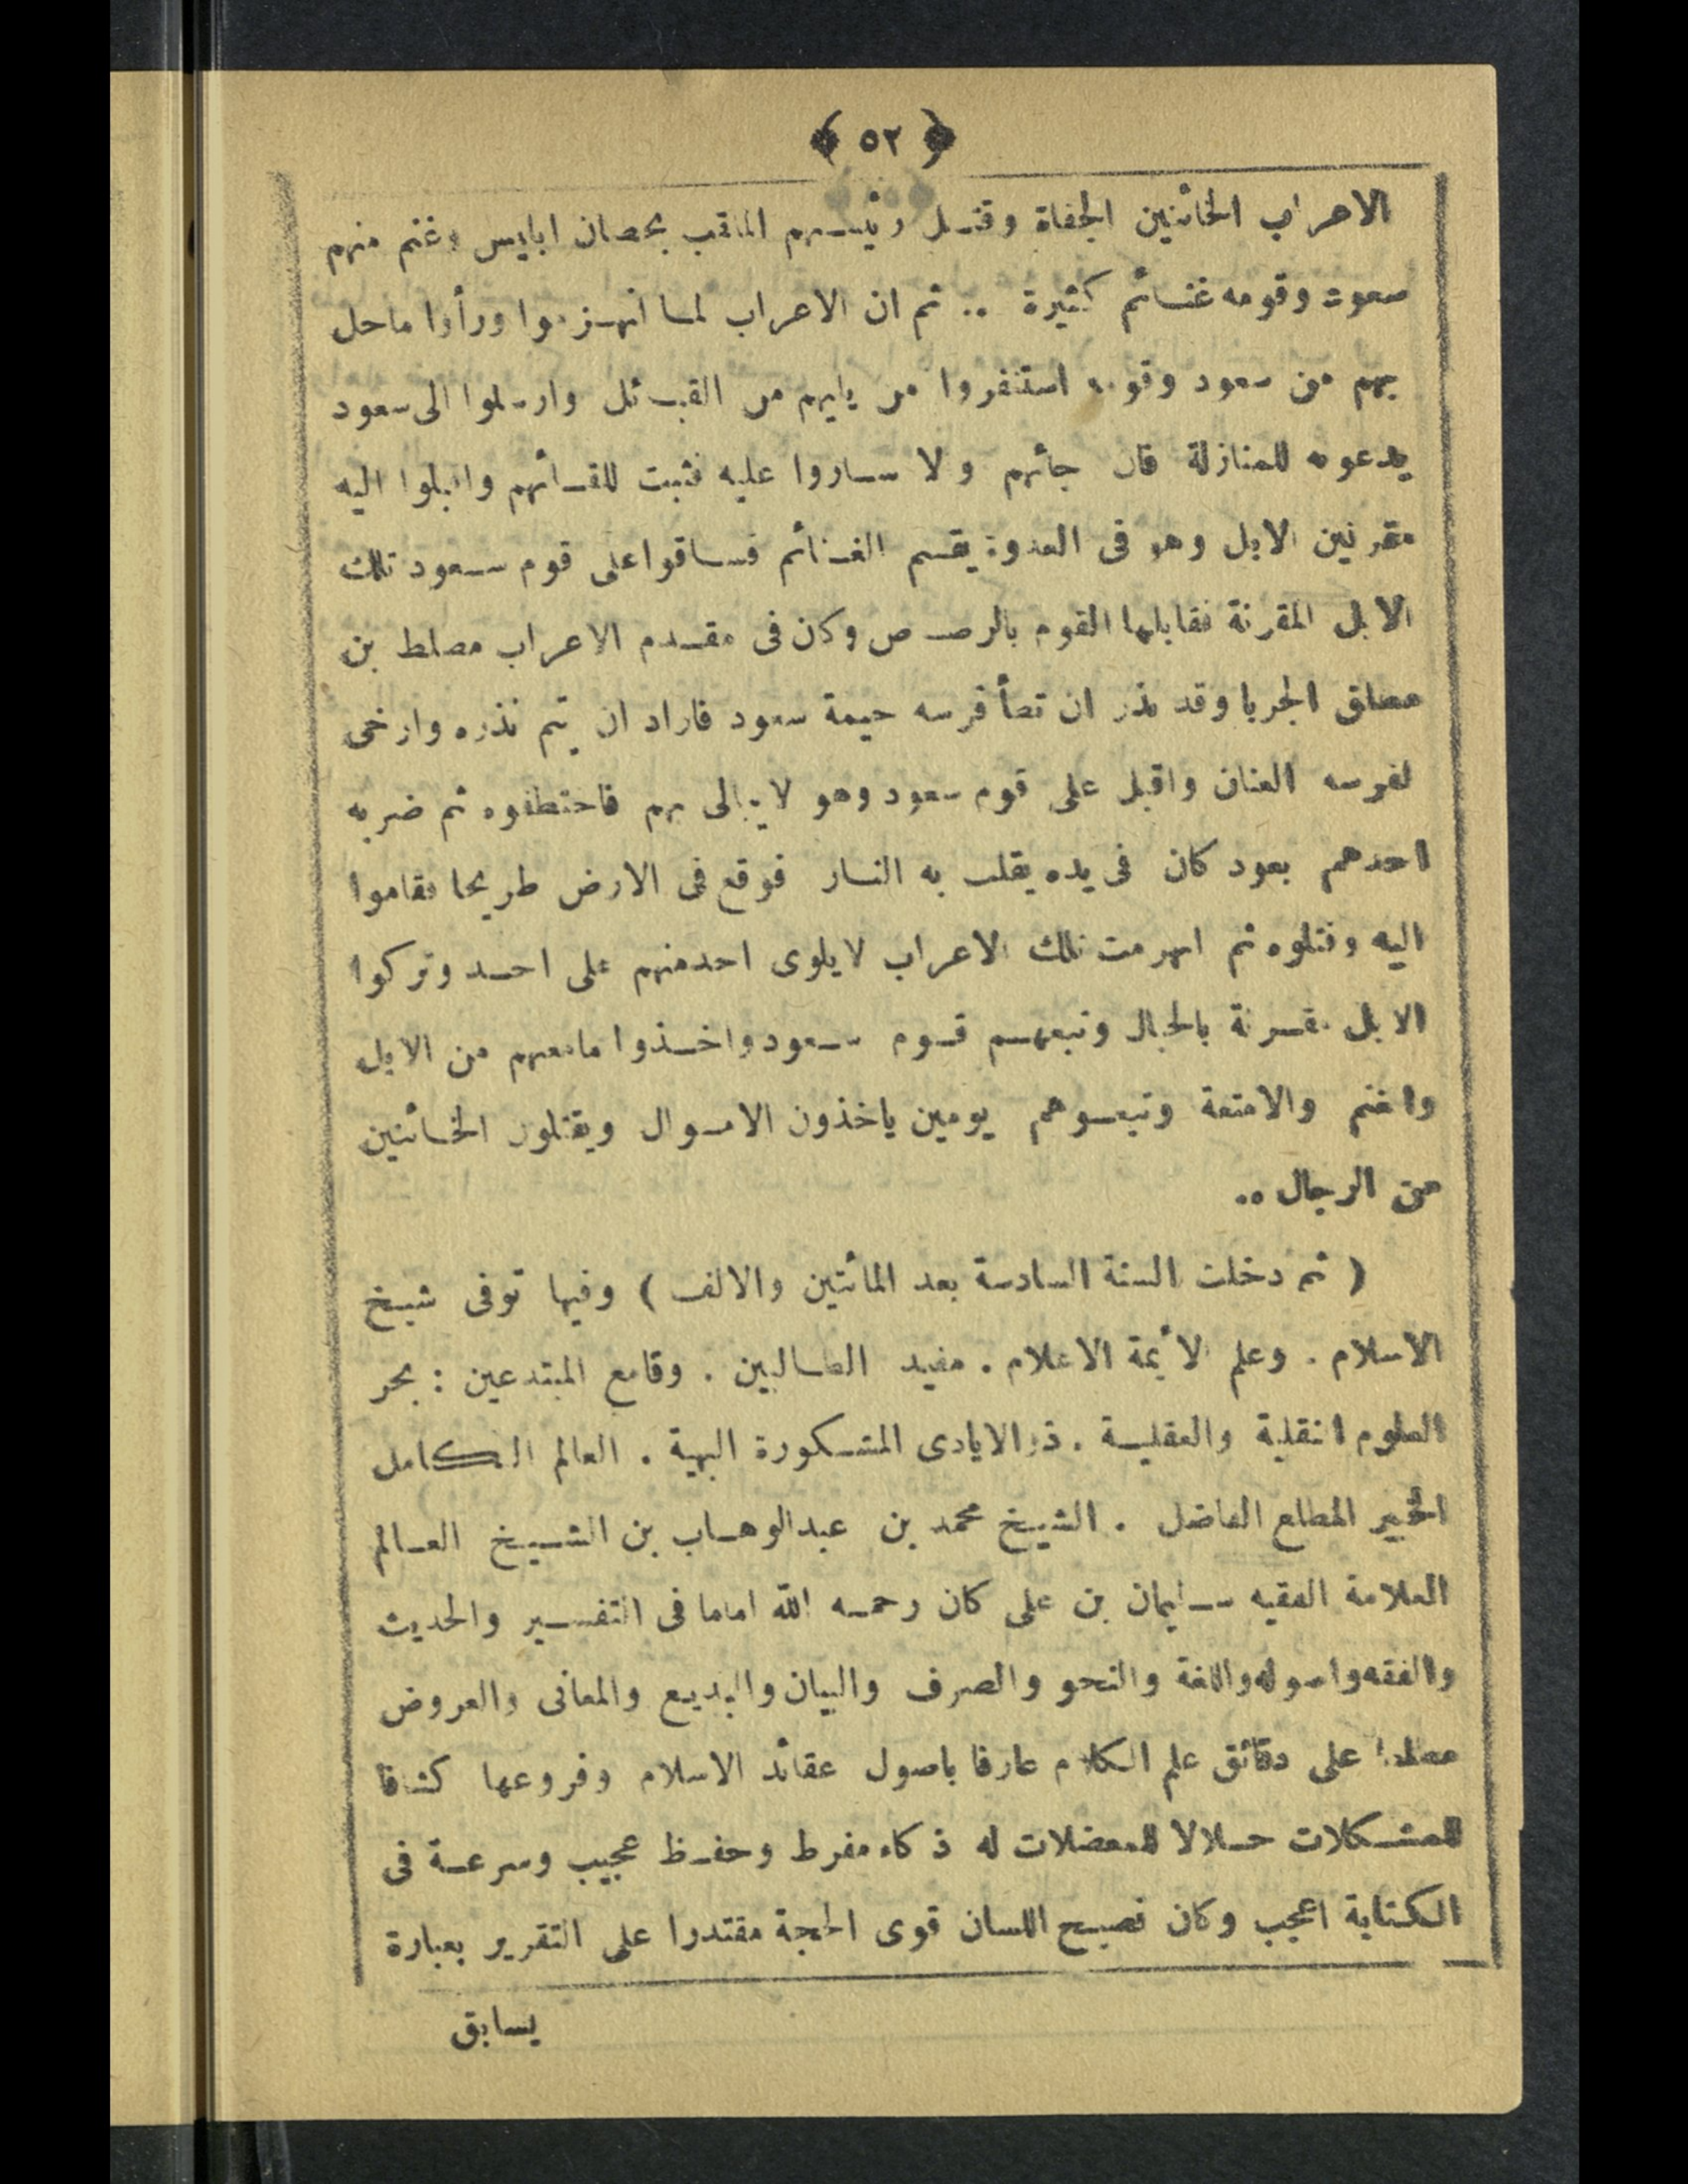 ﴿ ٥٢ ﴾
الاعراب الخائنين الجفاة وقتل رئيسهم الملقب بحصان ابليس وغنم منهم
سعود وقومه غنائم كثيرة .. ثم ان الاعراب لما انهزموا ورأوا ماحل
بهم من سعود وقومه استنفروا من يليهم من القبائل وارسلوا الى سعود
يدعوه للمنازلة فان جائهم ولا ساروا عليه فثبت للقائهم واقبلوا اليه
مقرنين الابل وهو فى العدوة يقسم الغنائم فساقوا على قوم سعود تلك
الابل المقرنة فقابلها القوم بالرصاص وكان فى مقدم الاعراب مصلط بن
مطلق الجربا وقد نذر ان تطأ فرسه خيمة سعود فاراد ان يتم نذره وارخى
لفرسه العنان واقبل على قوم سعود وهو لا يبالى بهم فاختطفوه ثم ضربه
احدهم بعود كان فى يده يقلب به النار فوقع فى الارض طريحا فقاموا
اليه وقتلوه ثم انهزمت تلك الاعراب لا يلوى احد منهم على احد وتركوا
الابل مقرنة بالحبال وتبعهم قوم سعود واخذوا مامعهم من الابل
والغنم والامتعة وتبعوهم يومين ياخذون الاموال ويقتلون الخائنين
من الرجال ..
( ثم دخلت السنة السادسة بعد المائتين والالف ) وفيها توفى شيخ
الاسلام . وعلم الأئمة الاعلام . مفيد الطالبين . وقامع المبتدعين : بحر
العلوم النقلية والعقلية . ذو الايادى المشكورة البهية . العالم الكامل
الخبير المطلع الفاضل . الشيخ محمد بن عبدالوهاب بن الشيخ العالم
العلامة الفقيه سليمان بن على كان رحمه الله اماما فى التفسير والحديث
والفقه واصوله واللغة والنحو والصرف والبيان والبديع والمعانى والعروض
مطلعا على دقائق علم الكلام عارفا باصول عقائد الاسلام وفروعها كشافا
للمشكلات حلالا للمعضلات له ذكاء مفرط وحفظ عجيب وسرعة فى
الكتابة اعجب وكان فصيح اللسان قوى الحجة مقتدرا على التقرير بعبارة
يسابق